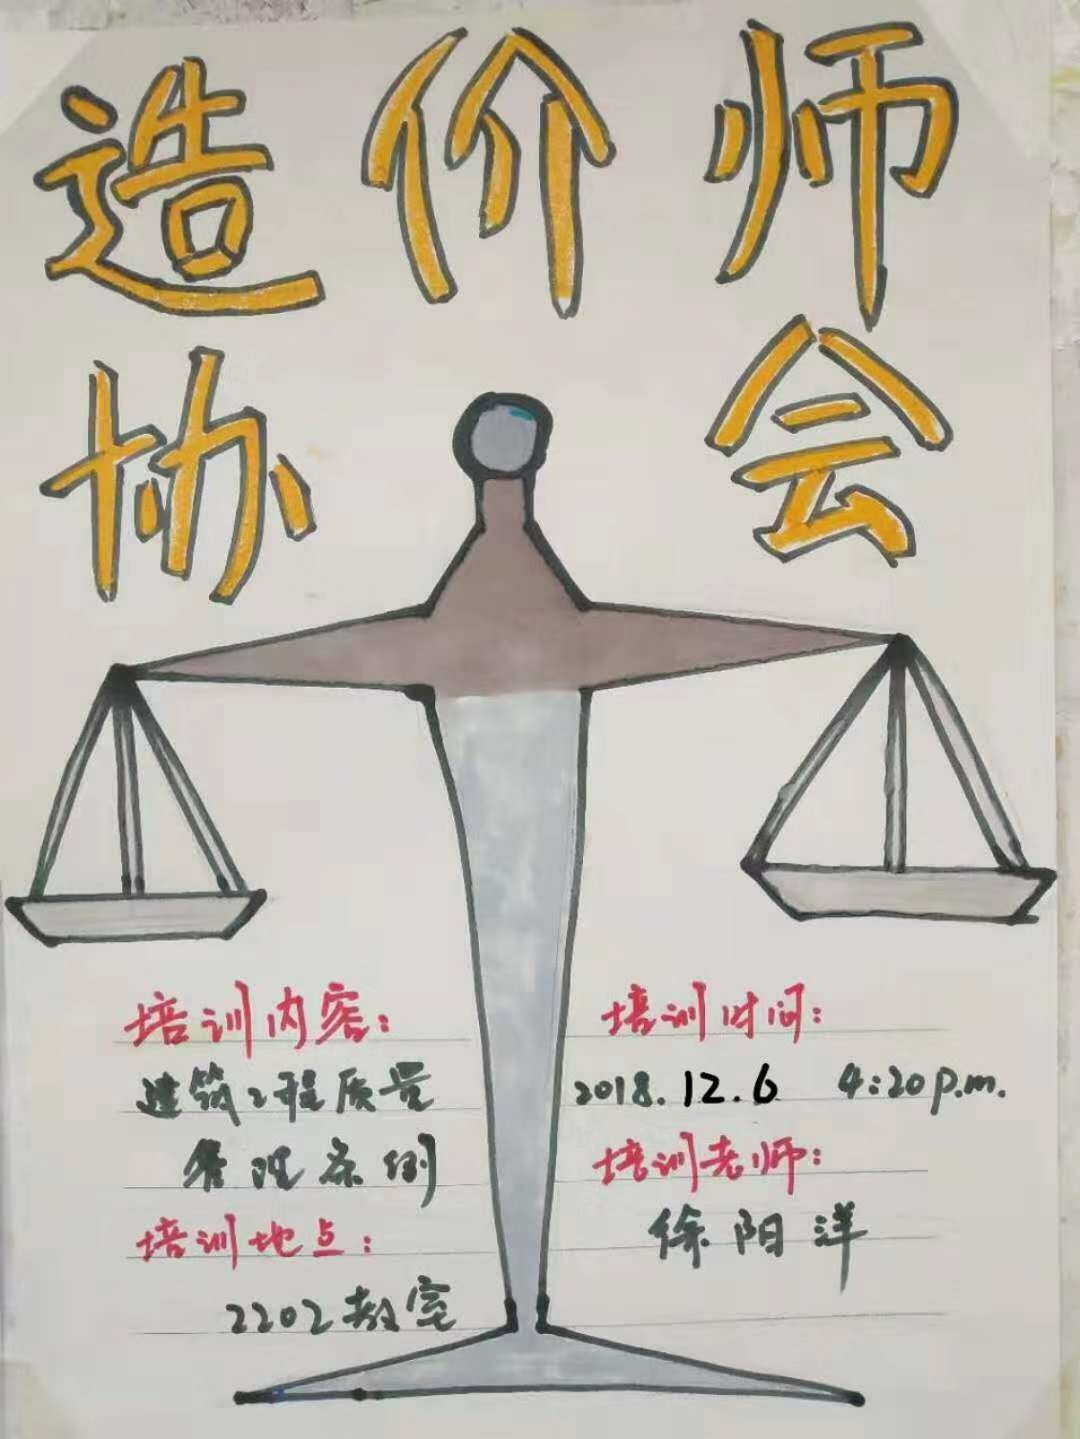 造价师
协会
培训内容：
建筑工程质量
管理条例
培训地点：
2202教室
培训时间：
2018.12.6 4:20p.m.
培训老师：
徐阳洋